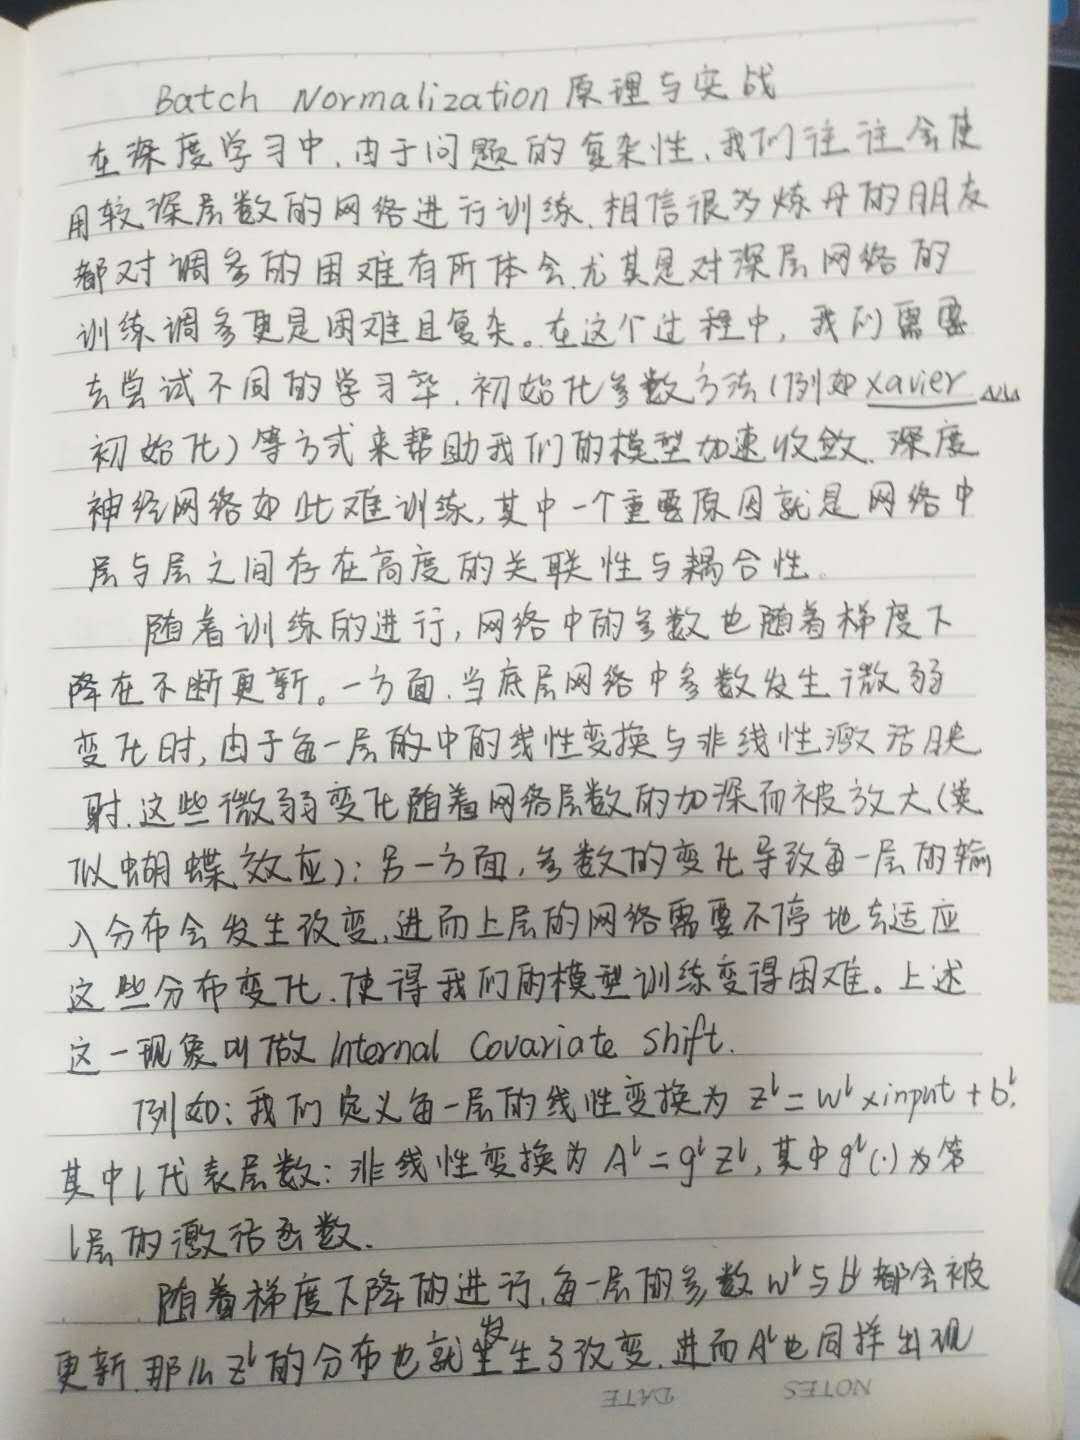 Batch Normalization 原理与实战
在深度学习中,由于问题的复杂性,我们往往会使
用较深层数的网络进行训练,相信很多炼丹的朋友
都对调参的困难有所体会,尤其是对深层网络的
训练调参更是困难且复杂。在这个过程中,我们需要
去尝试不同的学习率,初始化参数方法(例如xavier
初始化)等方式来帮助我们的模型加速收敛,深度
神经网络如此难训练,其中一个重要原因就是网络中
层与层之间存在高度的关联性与耦合性。
随着训练的进行,网络中的参数也随着梯度下
降在不断更新。一方面,当底层网络中参数发生微弱
变化时,由于每一层的中的线性变换与非线性激活映
射,这些微弱变化随着网络层数的加深而被放大(类
似蝴蝶效应);另一方面,参数的变化导致每一层的输
入分布会发生改变,进而上层的网络需要不停地去适应
这些分布变化,使得我们的模型训练变得困难。上述
这一现象叫做 Internal Covariate Shift.
例如:我们定义每一层的线性变换为 zˡ=wˡ×input+bˡ,
其中l代表层数;非线性变换为 Aˡ=gˡzˡ,其中gˡ(·)为第
l层的激活函数.
随着梯度下降的进行,每一层的参数wˡ与bˡ都会被
更新,那么zˡ的分布也就发生了改变,进而Aˡ也同样出现
NOTES DATE